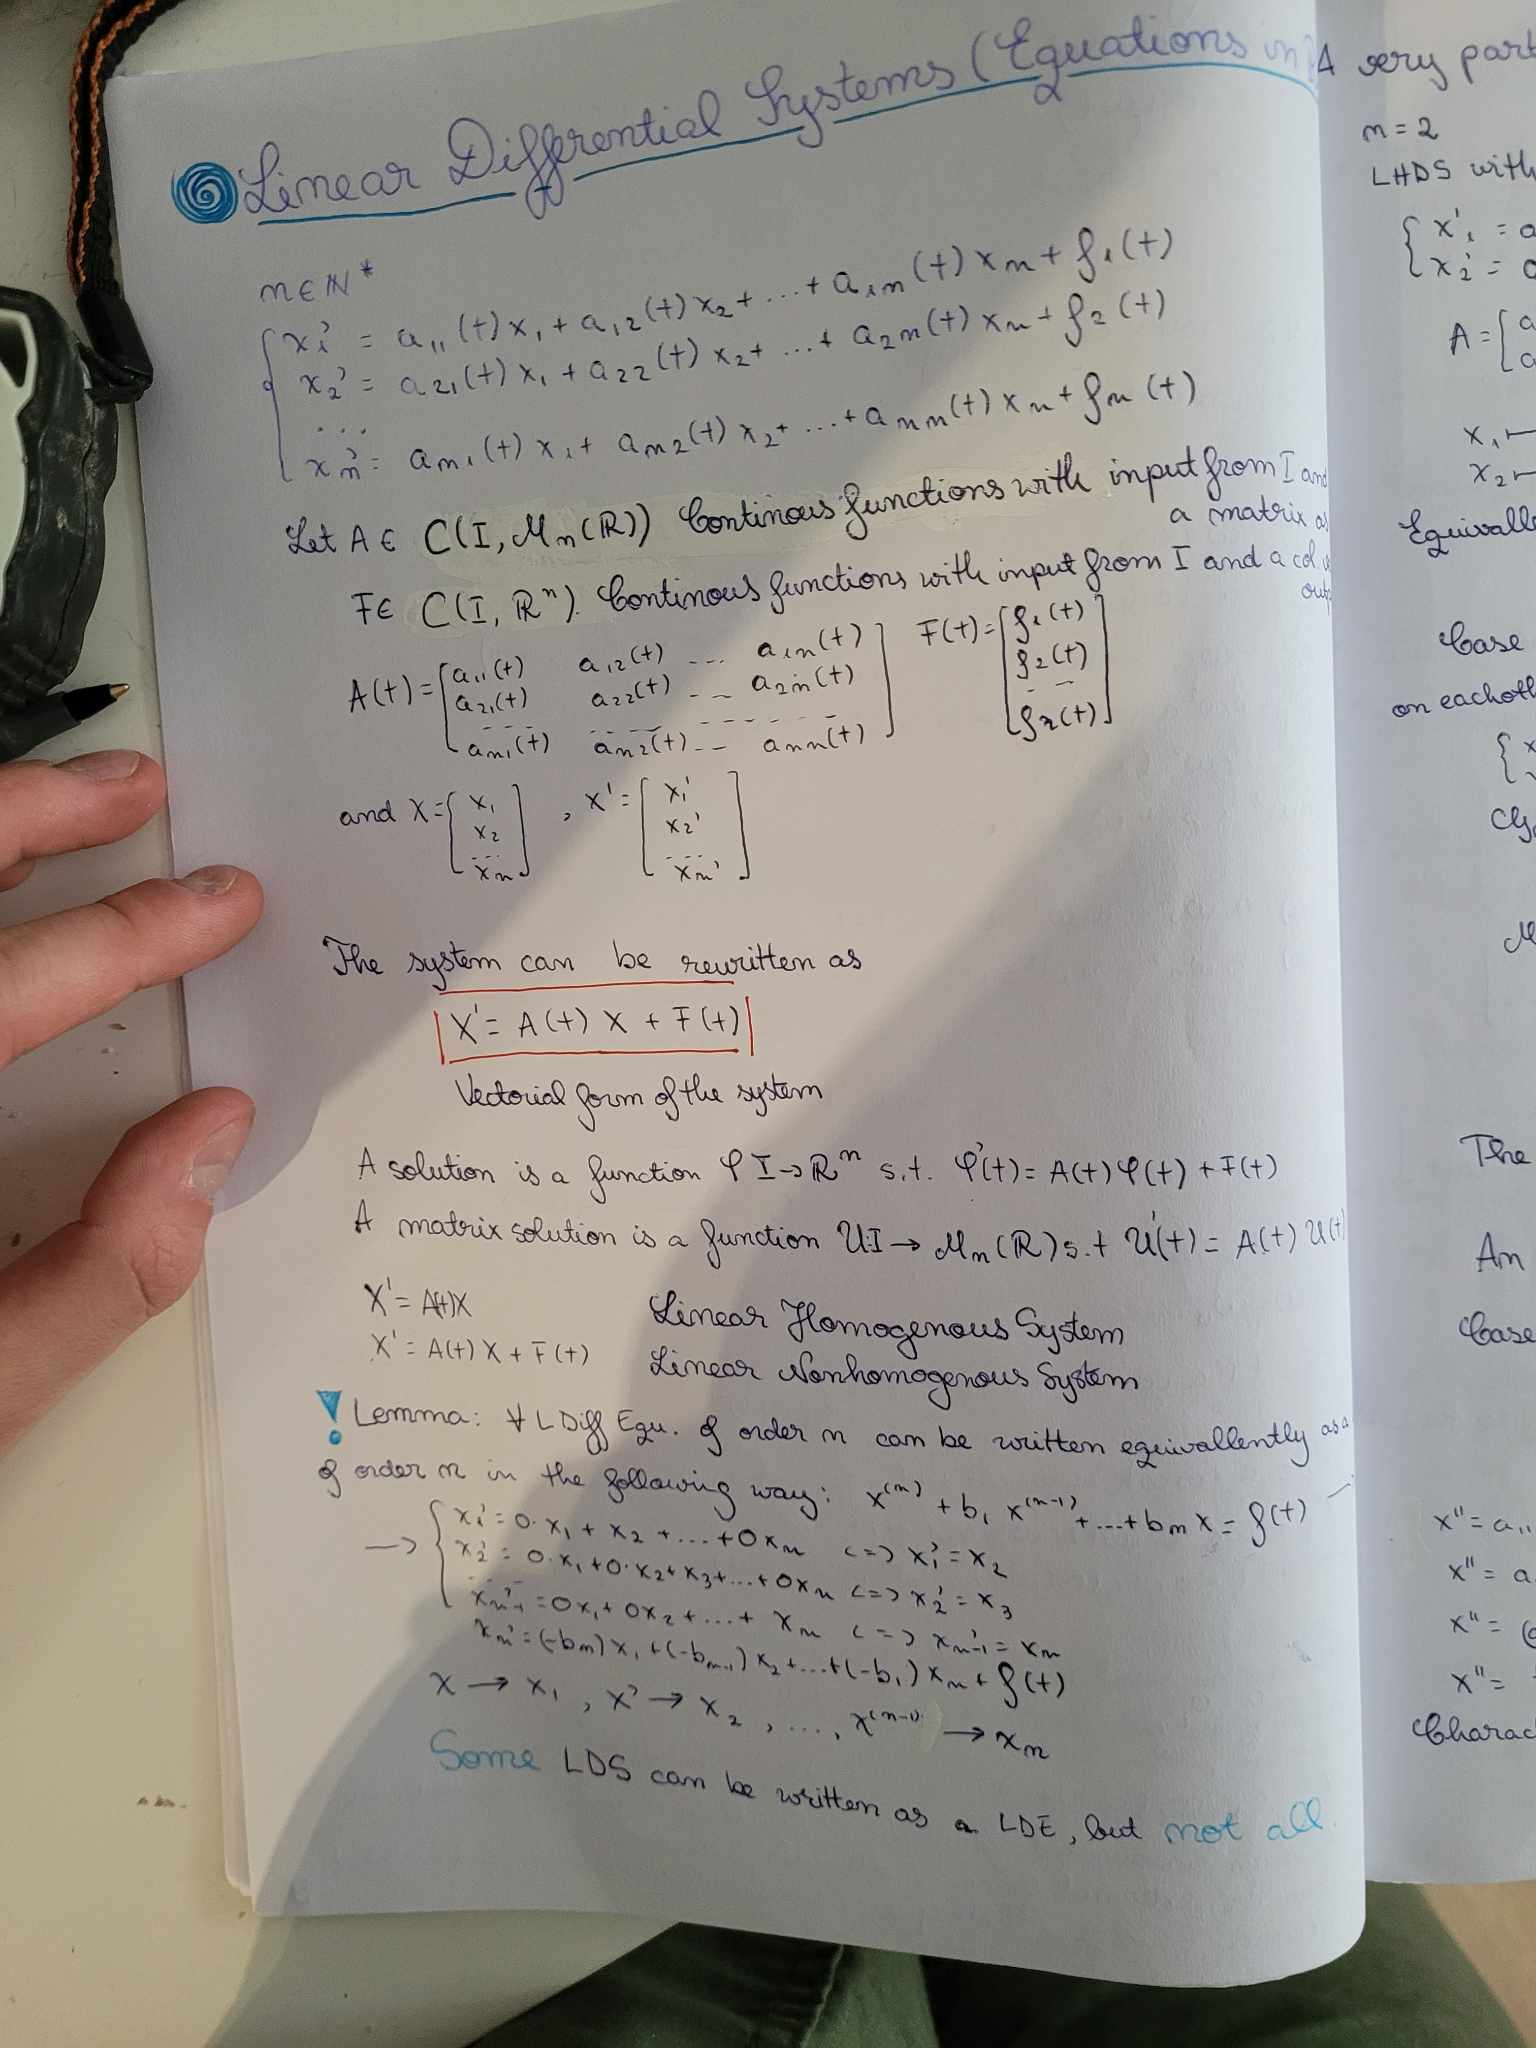 Linear Differential Systems (Equations in
n∈ℕ*
x₁' = a₁₁(t)x₁ + a₁₂(t)x₂ + ... + a₁ₙ(t)xₙ + f₁(t)
x₂' = a₂₁(t)x₁ + a₂₂(t)x₂ + ... + a₂ₙ(t)xₙ + f₂(t)
...
xₙ' = aₙ₁(t)x₁ + aₙ₂(t)x₂ + ... + aₙₙ(t)xₙ + fₙ(t)
Let A∈ C(I, Mₙ(ℝ)) Continous functions with input from I and
a matrix as
F∈ C(I, ℝⁿ). Continous functions with input from I and a col.
A(t) = [a₁₁(t) a₁₂(t) ... a₁ₙ(t) F(t) = [f₁(t)
a₂₁(t) a₂₂(t) ... a₂ₙ(t) f₂(t)
aₙ₁(t) aₙ₂(t) ... aₙₙ(t)] f₂(t)]
and X = [x₁ , X' = [x₁'
x₂ x₂'
... ...
xₙ] xₙ']
The system can be rewritten as
X' = A(t) X + F(t)
Vectorial form of the system
A solution is a function φ I→ℝⁿ s.t. φ'(t) = A(t)φ(t) + F(t)
A matrix solution is a function U:I → Mₙ(ℝ) s.t U'(t) = A(t) U(t)
X' = A(t)X Linear Homogenous System
X' = A(t)X + F(t) Linear Nonhomogenous System
! Lemma: ∀ L Diff Equ. of order n can be written equivallently as a
of order n in the following way: x⁽ⁿ⁾ + b₁ x⁽ⁿ⁻¹⁾ + ... + bₙ x = f(t)
→ { x₁' = 0·x₁ + x₂ + ... + 0xₙ <=> x₁' = x₂
x₂' = 0·x₁ + 0·x₂ + x₃ + ... + 0xₙ <=> x₂' = x₃
...
xₙ₋₁' = 0x₁ + 0x₂ + ... + xₙ <=> xₙ₋₁' = xₙ
xₙ' = (-bₙ)x₁ + (-bₙ₋₁)x₂ + ... + (-b₁)xₙ + f(t)
x → x₁, x' → x₂, ..., x⁽ⁿ⁻¹⁾ → xₙ
Some LDS can be written as a LDE, but not all.
A very part
n = 2
LHDS with
x₁' = a
x₂' = a
A = [a
a
x₁ ↦
x₂ ↦
Equivall
Case
on eachoth
{ x
The
An
Case
x'' = a₁₁
x'' = a
x'' = (
x'' =
Charac